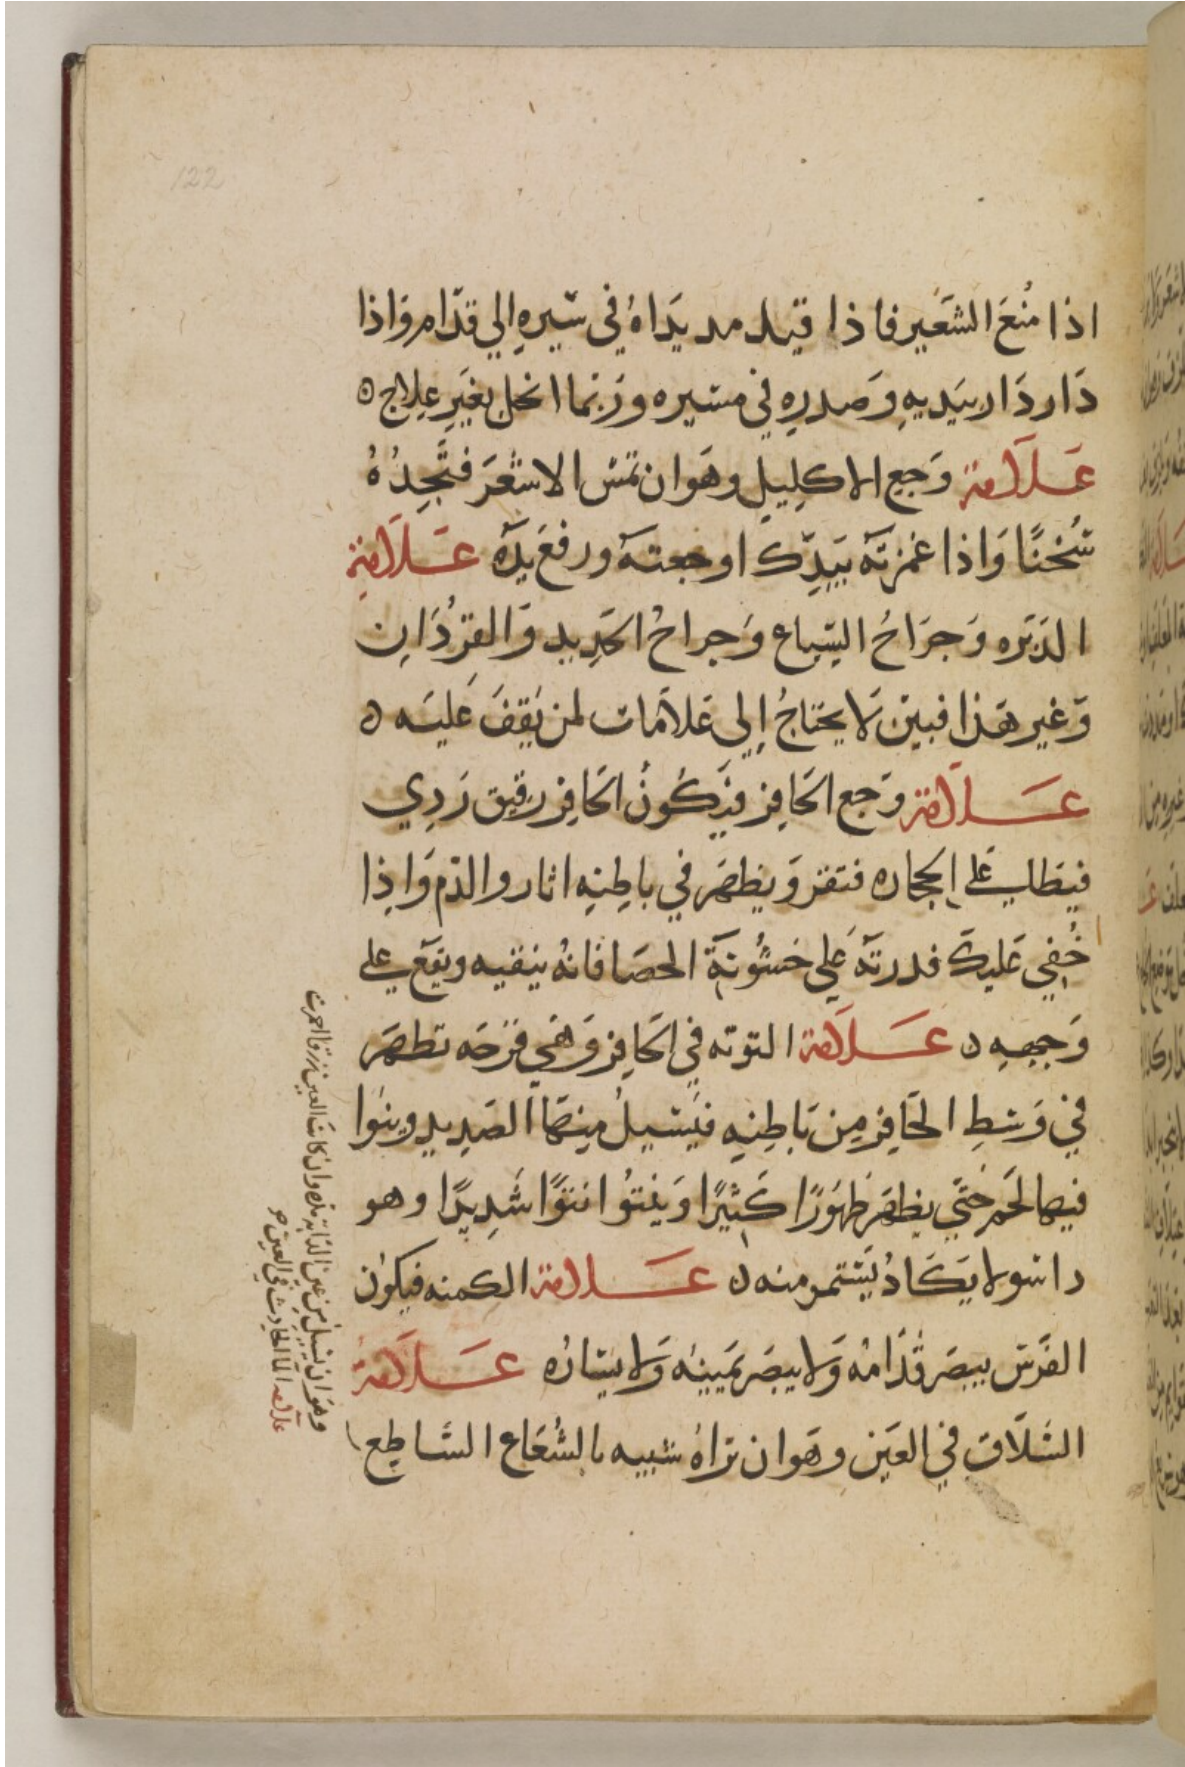 122
اذا مُنعَ الشعَير فاذا قيد مد يَداهُ في سَيرهِ الي قدّام وَاذا
دَار دَار بيَديهِ وَصدرهِ في مسيره ورَبما انحل بغَيرِ عِلاج ه
عَلَامة وَجع الاكلِيل وهَوان تمس الاشعَر فتَجِدُهُ
سُخنًا وَاذا غمزتَهُ بيَدِك اوجعتهُ ورفعَ يَدَهُ عَلَامة
الدَبَره وَجرَاحُ السِباع وَجراحُ الحَدِيد وَالقرُدَان
وَغير هَذا فبين لَا يحتاجُ اِلى عَلامَات لمن يَقِفَ عَليه ه
عَلَامة وَجع الحَافِر فيَكُونُ الحَافِر رَقيق رَدِي
فيطا علي الحجاره فتقر وَيظهَر في باطِنِهِ اثار والدَم وَاِذا
خُفِي عَليكَ قدرتَهُ عَلى خشُونةِ الحصَا فانهُ يَتقيه ويقَع علي
وَجهِهِ ه عَلَامة التوته في الحَافِر وَهَي قرحَه تظهَر
في وَسْطِ الحَافِر مِن بَاطِنِهِ فيَسيلُ مِنهَا الصَدِيد وينوا
فيها لَحَم حَتَي يظهَر ظهَورًا كَثيِرًا وَينتُوا نتوًا شَدِيدًا وهو
داسو لا يَكَادُ يَسَتمر منه ه عَلَامة الكمنه فيكَون
الفَرَس يبصَر قدَّامهُ وَلا يبصَر يَمينهُ وَلا يسَارُه عَلَامةُ
السُلَاق في العَين وهَوان ترَاهُ شبيه بالشُعَاع السَاطِع
وهوَان يَسيل من عَين الدَابة ماء وان كانت العين زرقا احمرت
علامه الما الحادث في العين هو